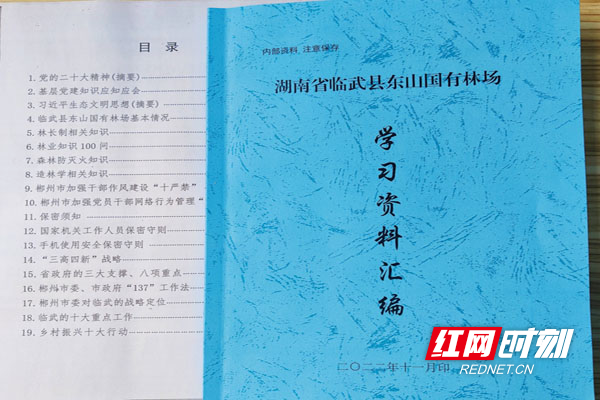 目 录
1. 党的二十大精神(摘要)
2. 基层党建知识应知应会
3. 习近平生态文明思想(摘要)
4. 临武县东山国有林场基本情况
5. 林长制相关知识
6. 林业知识 100 问
7. 森林防灭火知识
8. 造林学相关知识
9. 郴州市加强干部作风建设“十严禁”
10. 郴州市加强党员干部网络行为管理“
11. 保密须知
12. 国家机关工作人员保密守则
13. 手机使用安全保密守则
14. “三高四新”战略
15. 省政府的三大支撑、八项重点
16. 郴州市委、市政府“137”工作法
17. 郴州市委对临武的战略定位
18. 临武的十大重点工作
19. 乡村振兴十大行动
内部资料 注意保存
湖南省临武县东山国有林场
学习资料汇编
二〇二二年十一月印
红网时刻
REDNET.CN